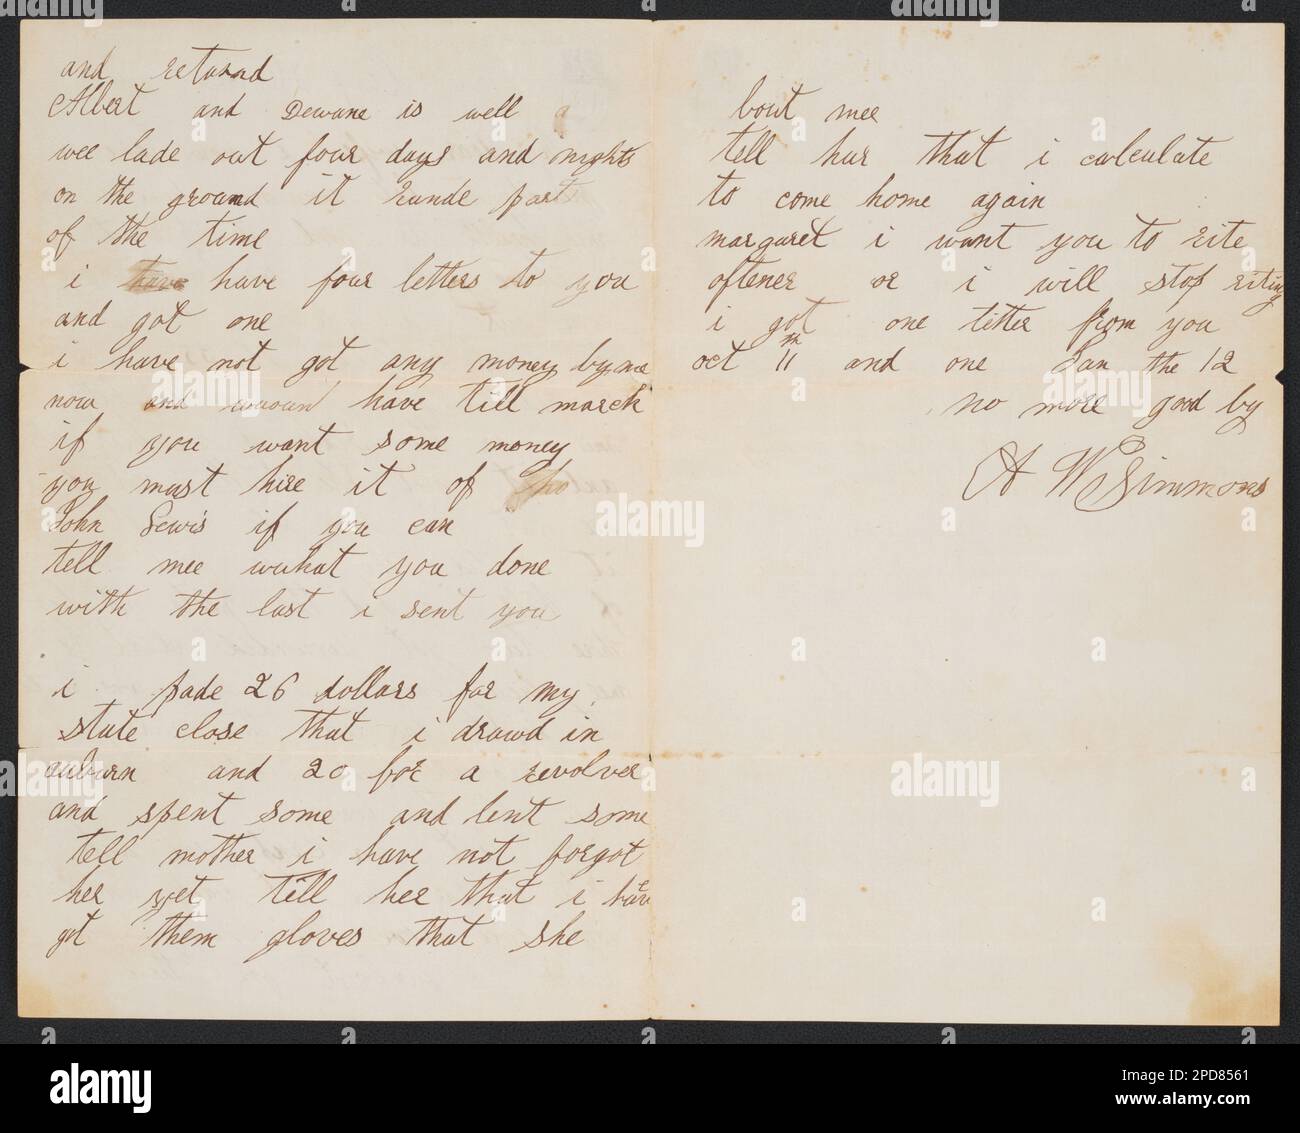 and returnd
Albert and Dewane is well
wee lade out four days and nights
on the ground it rande part
of the time
i have have four letters to you
and got one
i have not got any money by me
now and havent have till march
if you want some money
you must hire it of
John Lewis if you can
tell mee wuhat you done
with the last i sent you
i pade 26 dollars for my
state close that i drawd in
auburn and 20 for a revolver
and spent some and lent some
tell mother i have not forgot
her yet till her that i have
got them gloves that she
bout mee
tell hur that i calculate
to come home again
margaret i want you to rite
oftener or i will stop riting
i got one letter from you
oct 11th and one Jan the 12
no more good by
A W Simmons
alamy
Image ID: 2PD8561
www.alamy.com